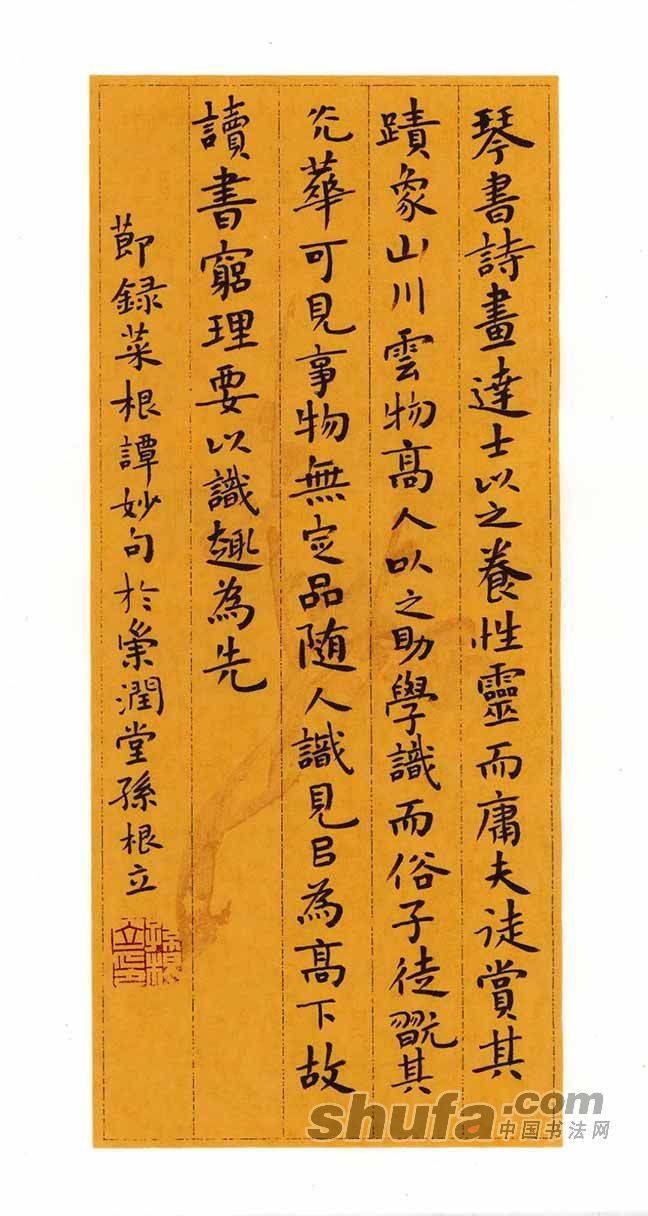 琴書詩畫達士以之養性靈而庸夫徒賞其
蹟象山川雲物高人以之助學識而俗子徒翫其
光華可見事物無定品随人識見㠯為高下故
讀書窮理要以識趣為先
節録菜根譚妙句於崇潤堂孫根立
shufa.com
中国书法网